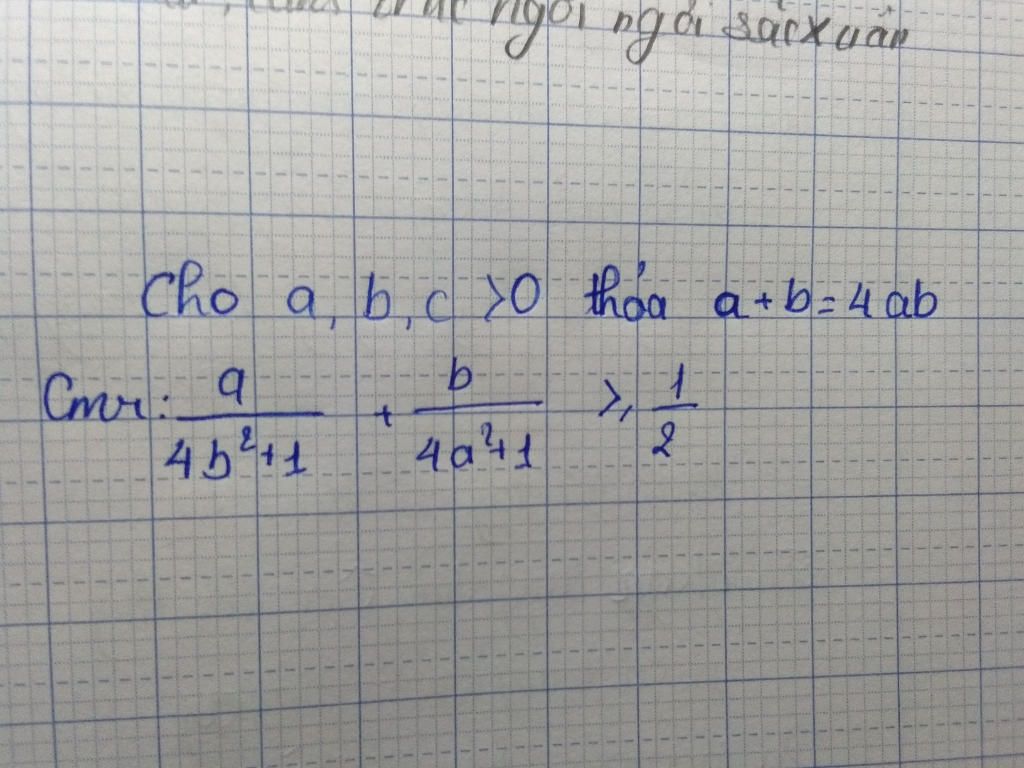 ngời ngời sắc xuân
Cho a, b, c >0 thỏa a+b=4ab
Cmr: a/(4b²+1) + b/(4a²+1) ≥ 1/2